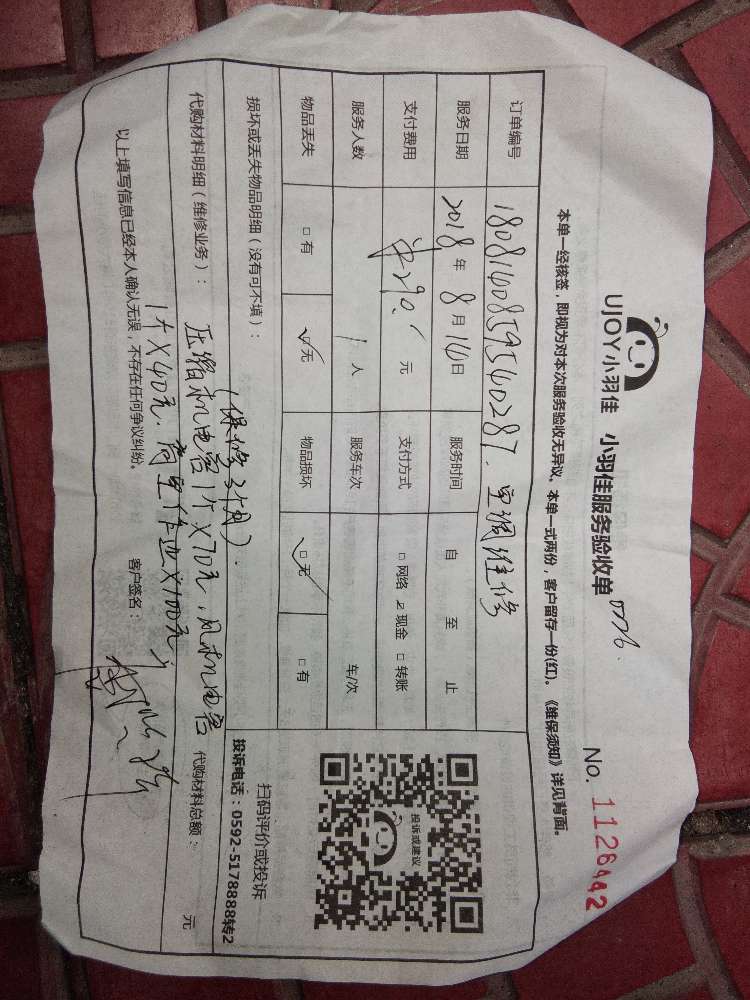 UJOY小羽佳 小羽佳服务验收单 0776.
No. 1126442
本单一经核签,即视为对本次服务验收无异议。本单一式两份,客户留存一份(红)。《维保须知》详见背面。
订单编号 1808140859540287. 空调维修
服务日期 2018年 8月 14日 服务时间 自 至 止
支付费用 290. 元 支付方式 □网络 ☑现金 □转账
服务人数 1人 服务车次 车/次
物品丢失 □有 ☑无 物品损坏 ☑无 □有
投诉或建议
扫码评价或投诉
投诉电话:0592-5178888转2
损坏或丢失物品明细(没有可不填):
(保修3个月).
代购材料明细(维修业务): 压缩机电容1个X70元,风机电容
1个X40元. 高空作业X100元,
代购材料总额: 元
以上填写信息已经本人确认无误,不存在任何争议纠纷。 客户签名: